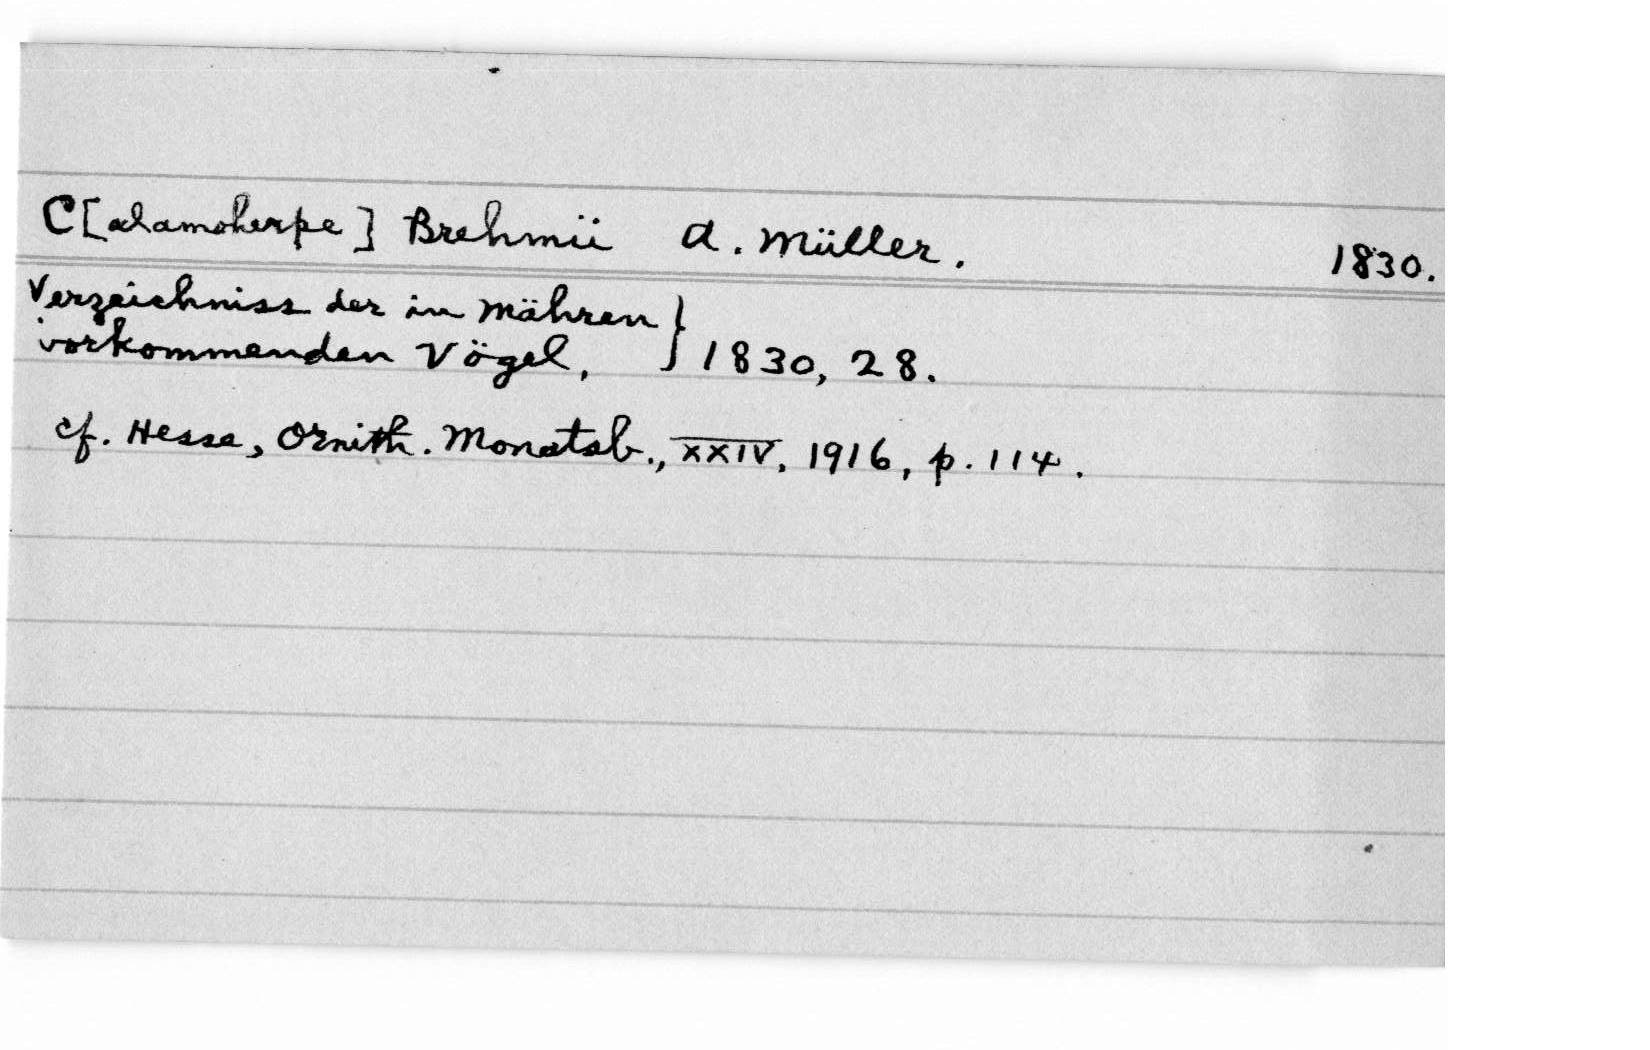 C[alamoherpe] Brehmii A. Müller. 1830.
Verzeichniss der in Mähren
vorkommenden Vögel, } 1830, 28.
cf. Hesse, Ornith. Monatsb., XXIV, 1916, p. 114.